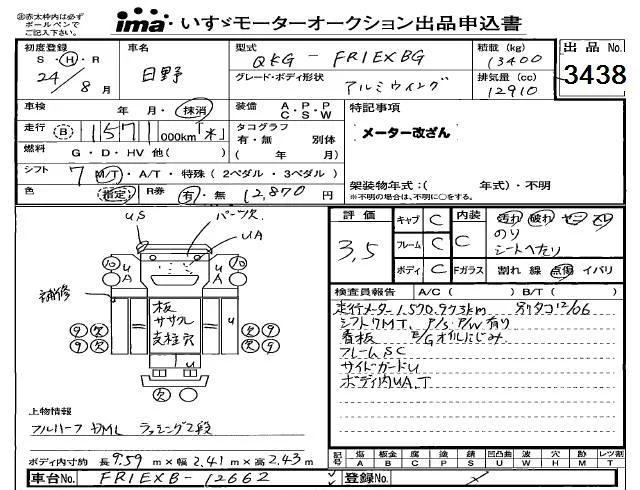 ㊟赤太枠内は必ず
ボールペンで
ご記入下さい。
ima いすゞモーターオークション出品申込書
初度登録
S・H・R
24/8月
車名
日野
型式
QKG - FR1EXBG
グレード・ボディ形状
アルミウイング
積載 (kg)
13400
排気量 (cc)
12910
出品 No.
3438
車検 年・月・抹消
走行 (B) 1571,000km「不」
燃料 G・D・HV 他( )
シフト 7 M/T・A/T・特殊(2ペダル・3ペダル)
色 (指定) R券 有・無 12,870円
装備 A・P・P C・S・W
タコグラフ
有・無 別体
( 年 月)
特記事項
メーター改ざん
架装物年式:( 年式)・不明
※不明の場合は、不明に○をする。
US
パーツ欠
UA
⑩ U A
⑩ U A
補修
板
ササクレ
支柱穴
u
⑨ 欠
⑨ 欠
欠 ⑨
欠 ⑨
u
欠
上物情報
フルハーフ ラッシング2段
ボディ内寸約 長9.59m×幅2.41m×高2.43m
車台No. FR1EXB-12662
評価
3,5
キャブ C
フレーム C
ボディ C
内装
C
汚れ 破れ コゲ スレ
のり
シートへたり
Fガラス 割れ 線 点傷 イバリ
検査員報告 A/C( ) B/T( )
走行メーター1,570,973km 別タコ12/06
シフト7MT、P/S P/W有り
看板 E/Gオイルにじみ
フレームSC
サイドガードU
ボディ内UA,T
記号 傷A 板金B 腐C 塗P 錆S 凹凸曲U 波W 穴H 跡M レンズ割T
登録No.